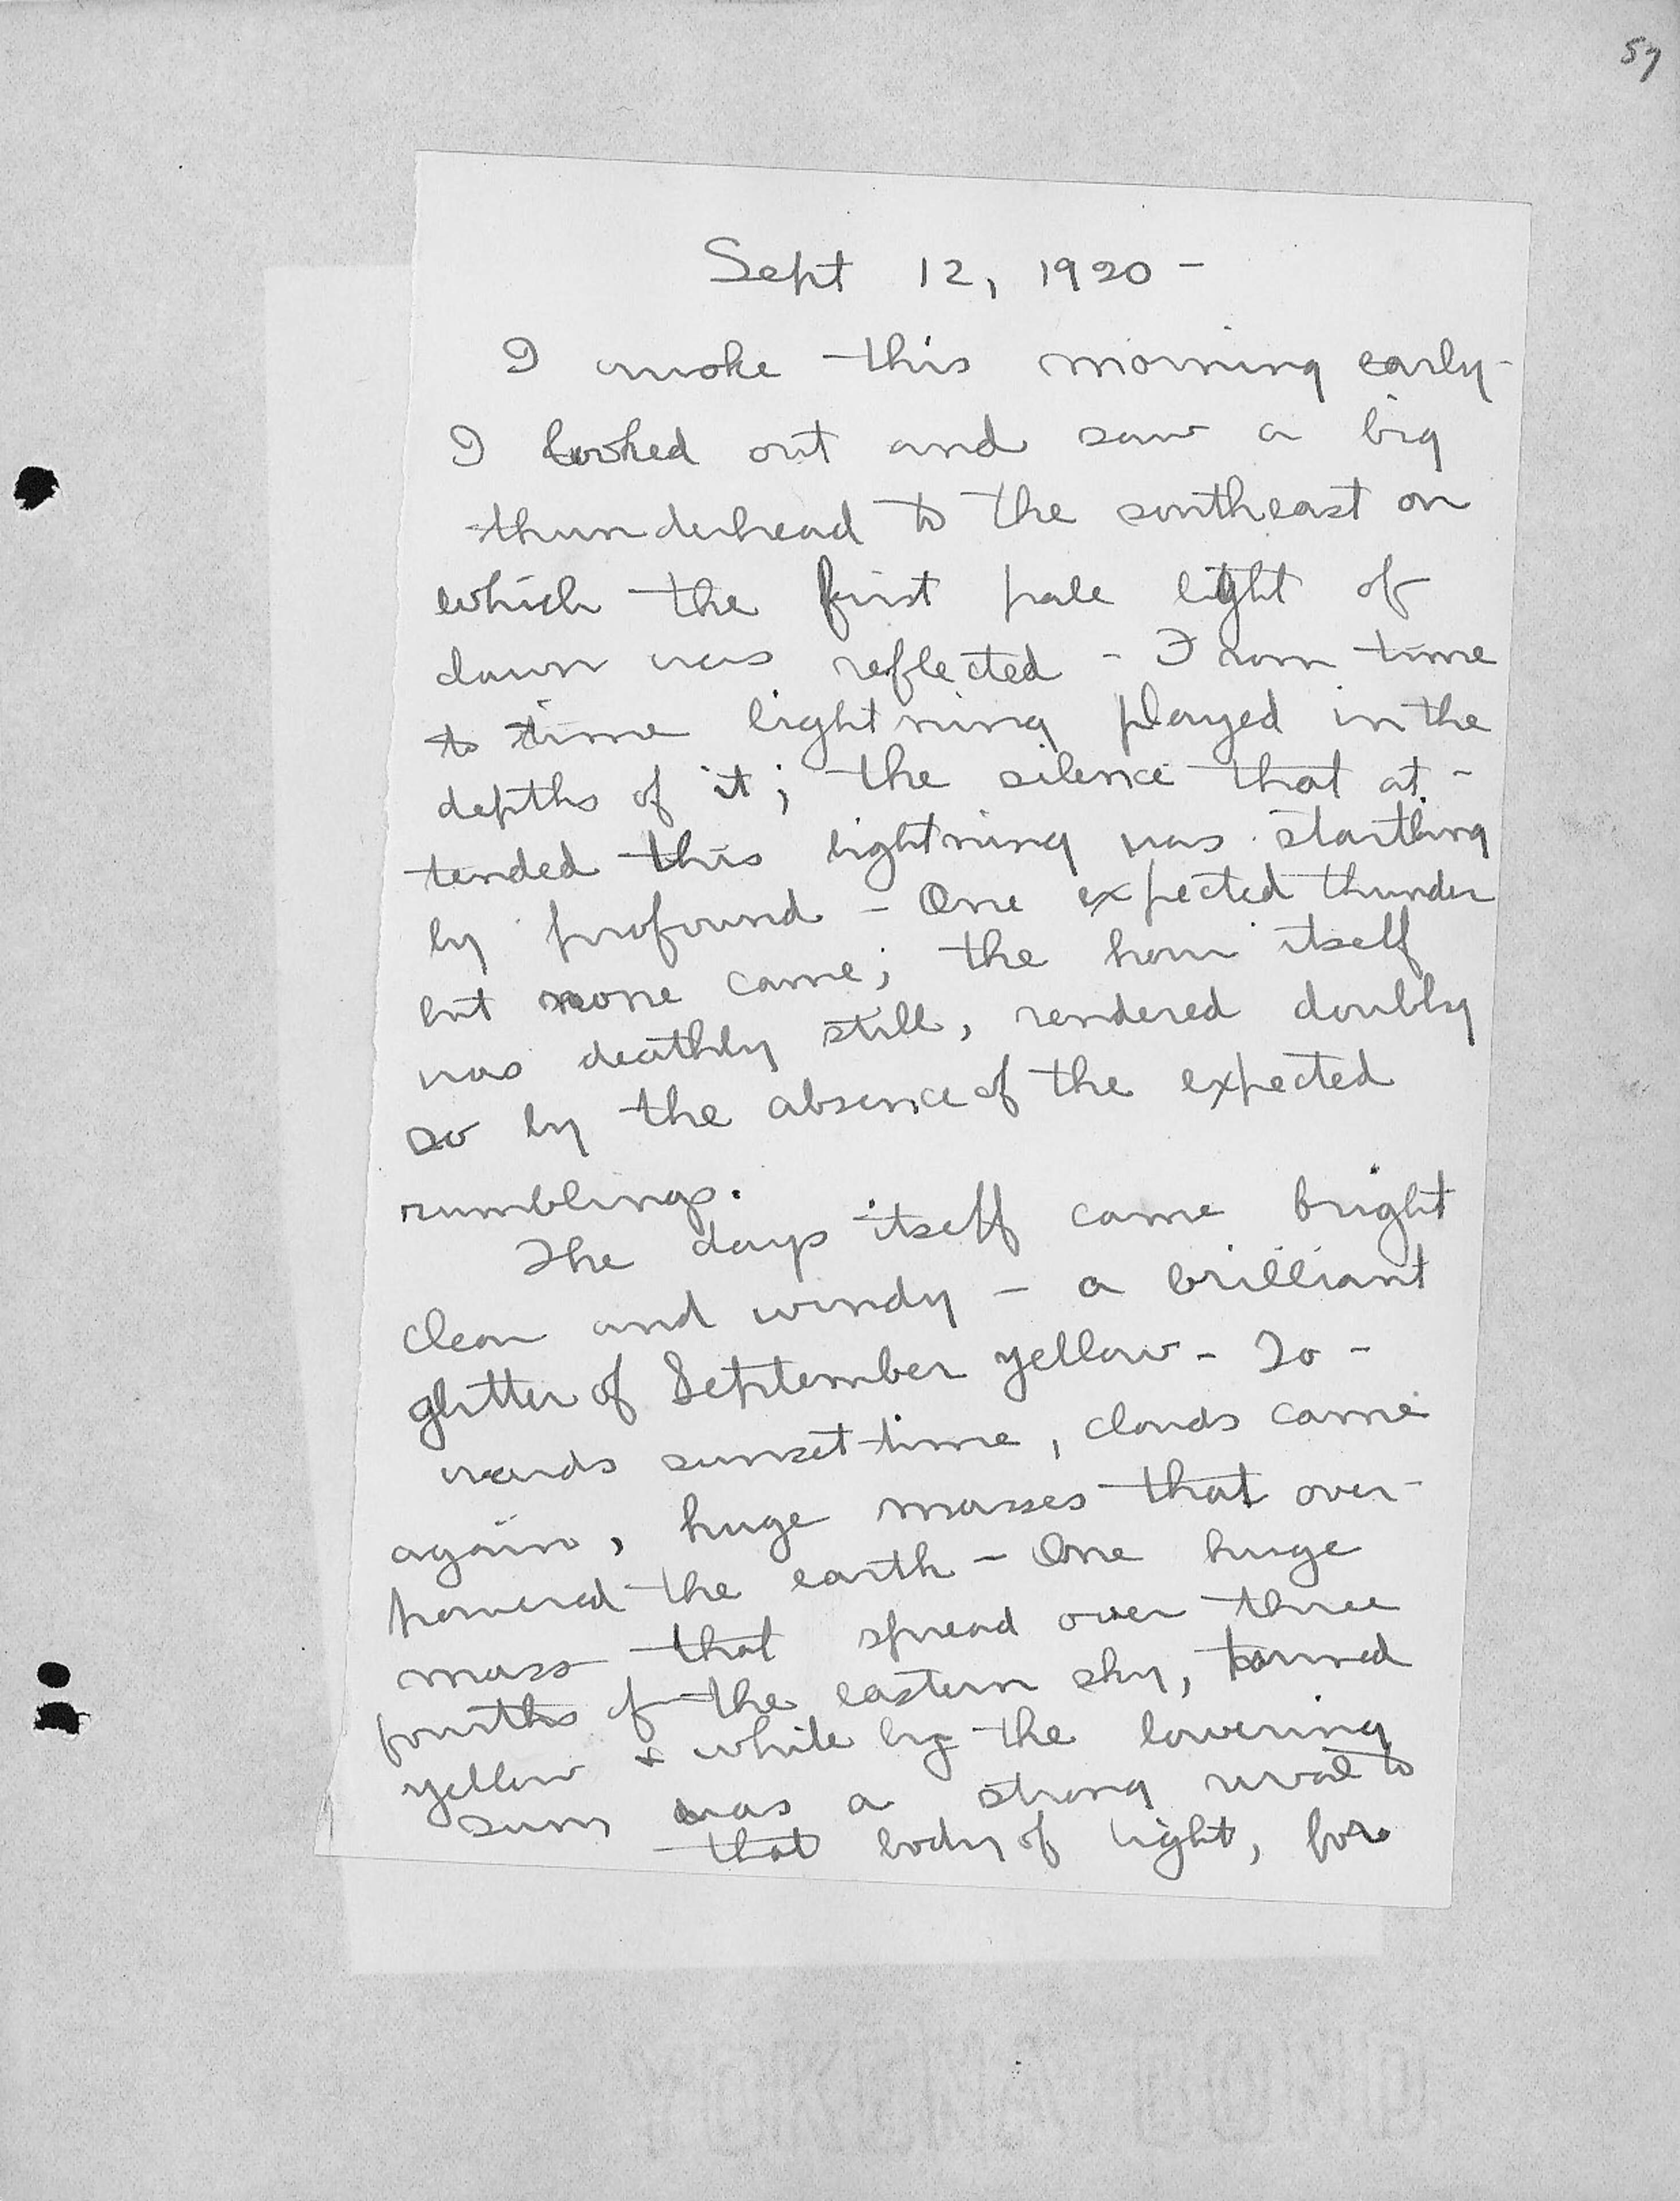 57
Sept 12, 1920 -
I awoke this morning early -
I looked out and saw a big
thunderhead to the southeast on
which the first pale light of
dawn was reflected - From time
to time lightning played in the
depths of it; the silence that at -
tended this lightning was startling
ly profound - One expected thunder
but none came; the hour itself
was deathly still, rendered doubly
so by the absence of the expected
rumblings.
The days itself came bright
clear and windy - a brilliant
glitter of September yellow - To -
wards sunset time, clouds came
again, huge masses that over -
powered the earth - One huge
mass that spread over three
fourths of the eastern sky, turned
yellow & white by the lowering
sun was a strong rival to
that body of light, for
YUKON BOND